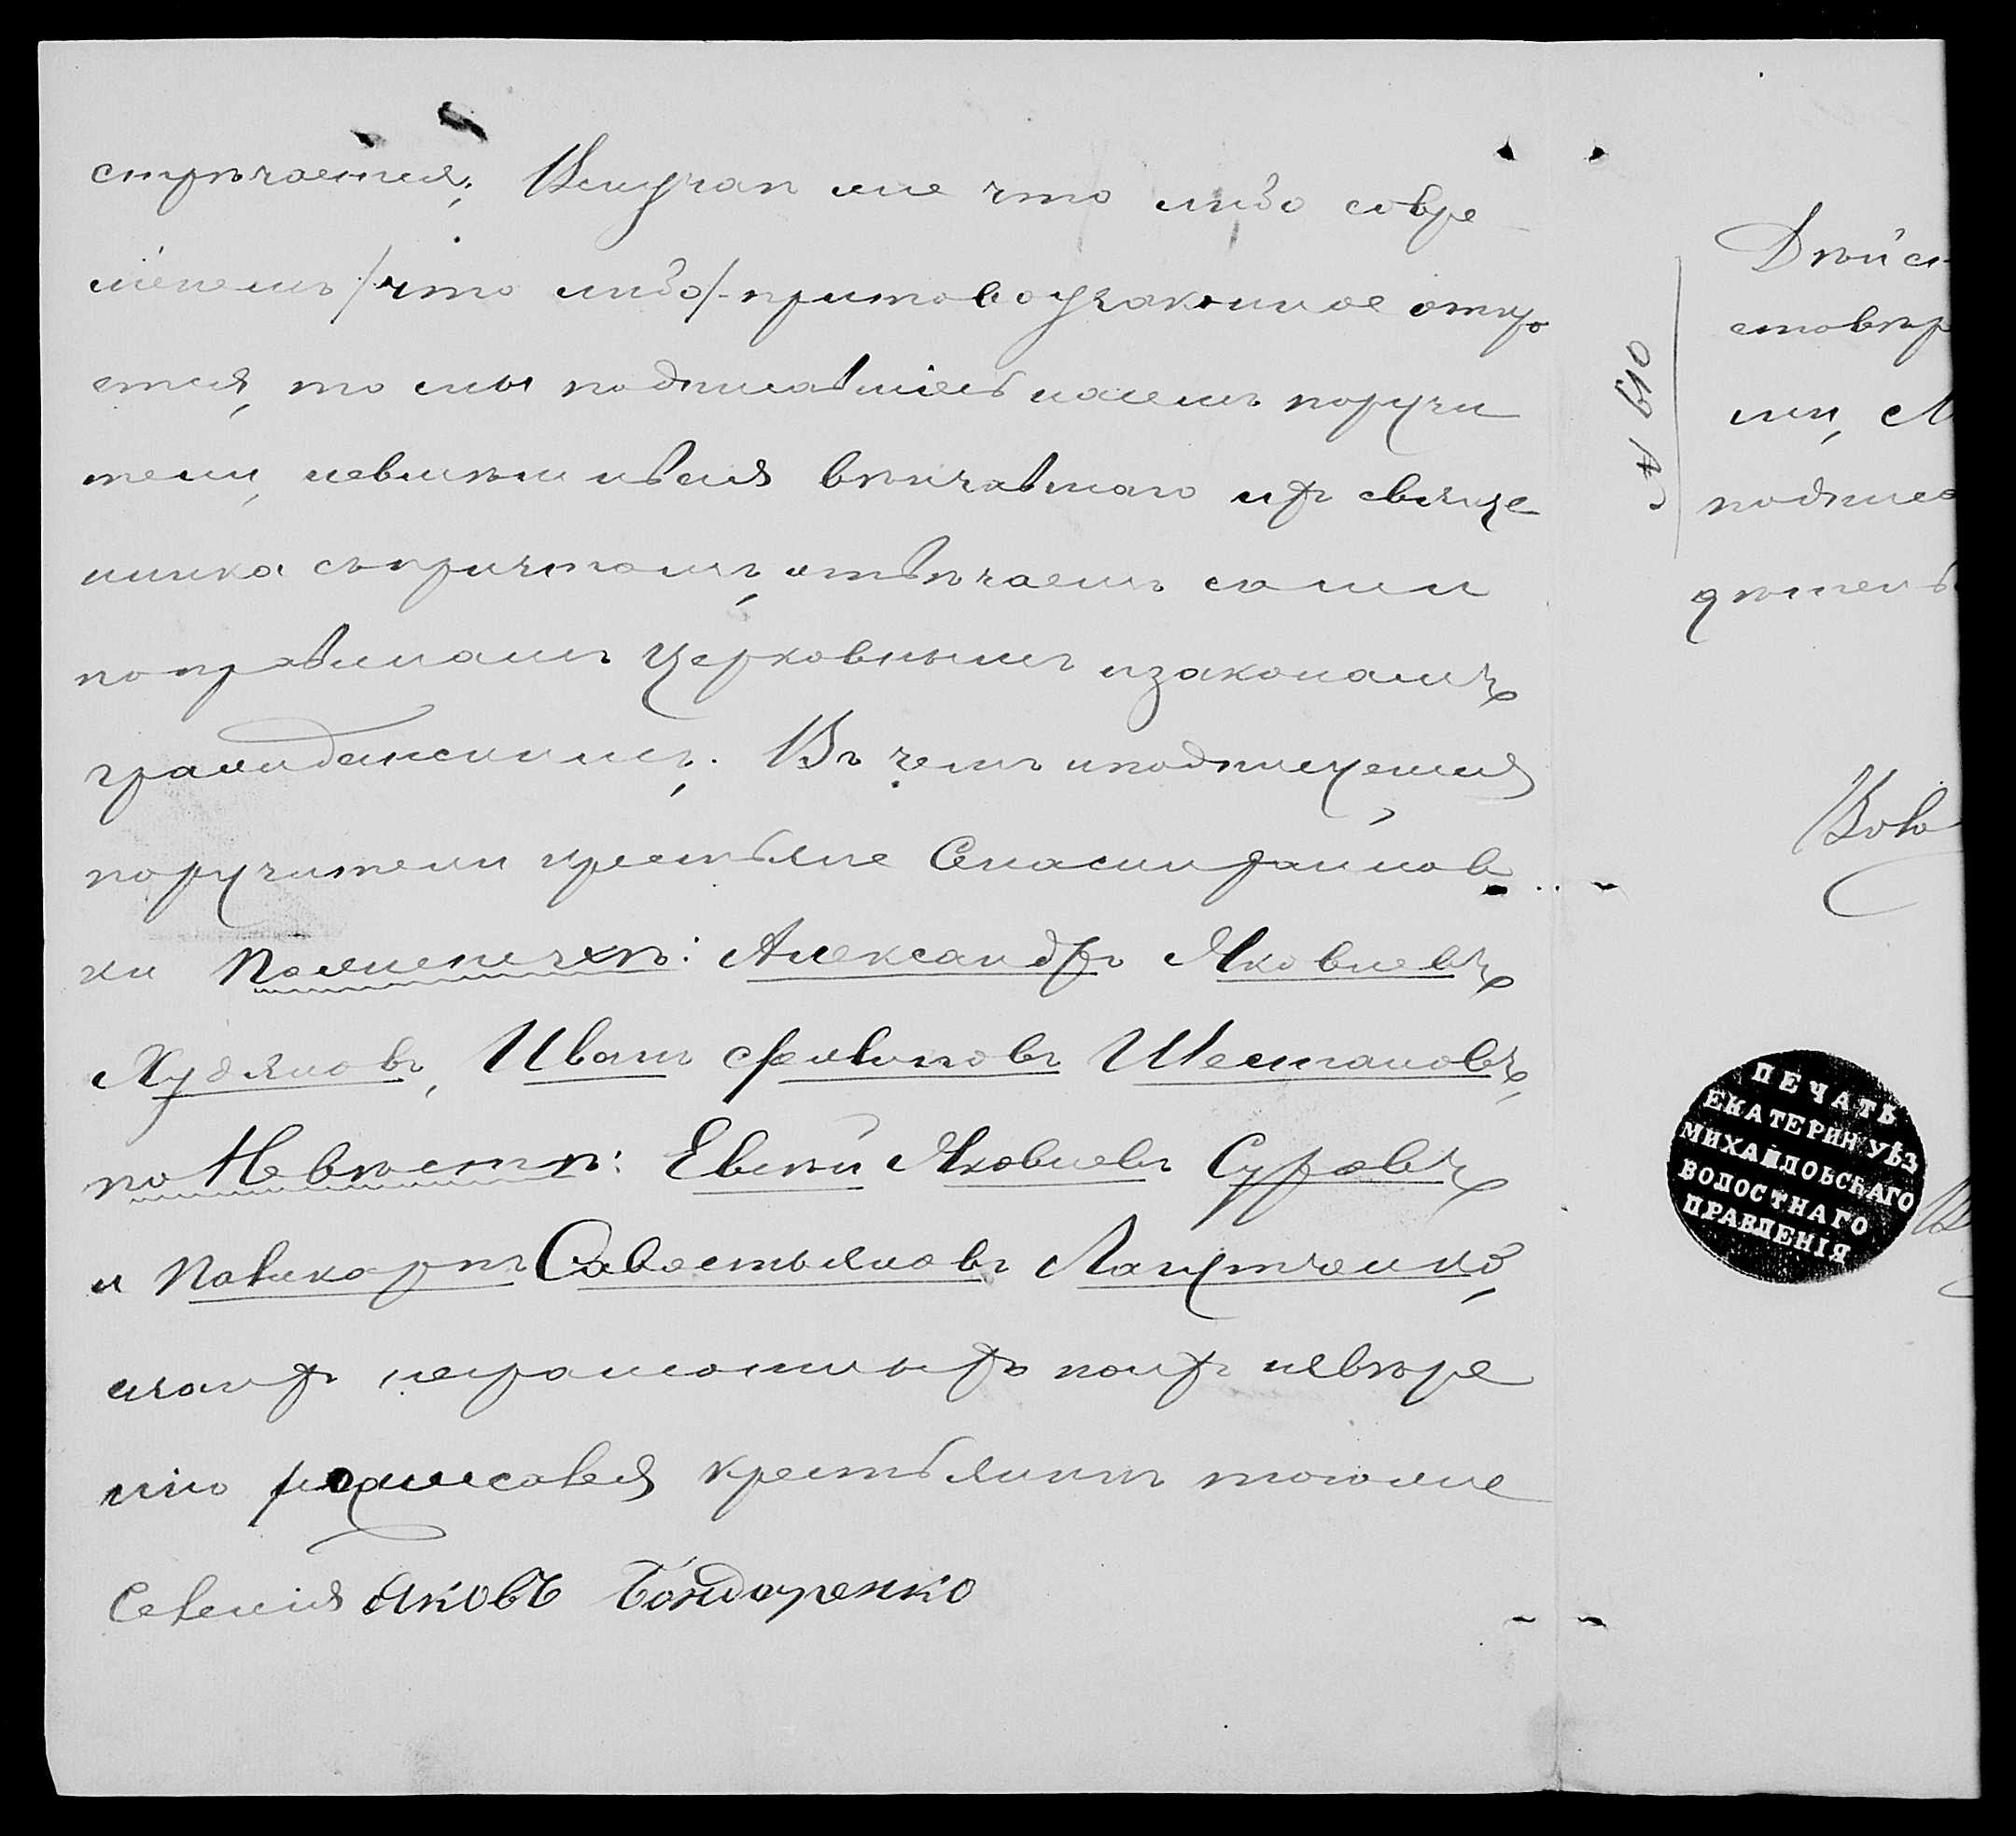 стрѣчается; Вслучаѣ же что либо совре
менемъ /что либо/ притовоузаконное откро
ется, то мы подписавшіесь насемъ поручи
тели, невмѣшивая вѣнчавшаго ихъ свяще
нника съпричтомъ, отвѣчаемъ сами
поправиламъ Церковнымъ изаконамъ
гражданскимъ. Въ чемъ иподпишемся
поручители крестьяне Села
ки Поженихѣ: Александръ Яковлевъ
Худяковъ, Иванъ Филиповъ Шестаковъ,
по Невѣстѣ: Евсѣй Яковлевъ Суровъ
и Поликарпъ Савостьяновъ Лагутченко,
азаихъ неграмотныхъ поихъ невѣре
нію росписовся крестьянинъ тогоже
Селенія Яковъ Бондаренко
№ 610
Дѣйс
стовѣр
ли, М
подписа
дѣтель
Воло
ПЕЧАТЬ
ЕКАТЕРИН УѢЗ
МИХАЙЛОВСКАГО
ВОЛОСТНАГО
ПРАВЛЕНІЯ